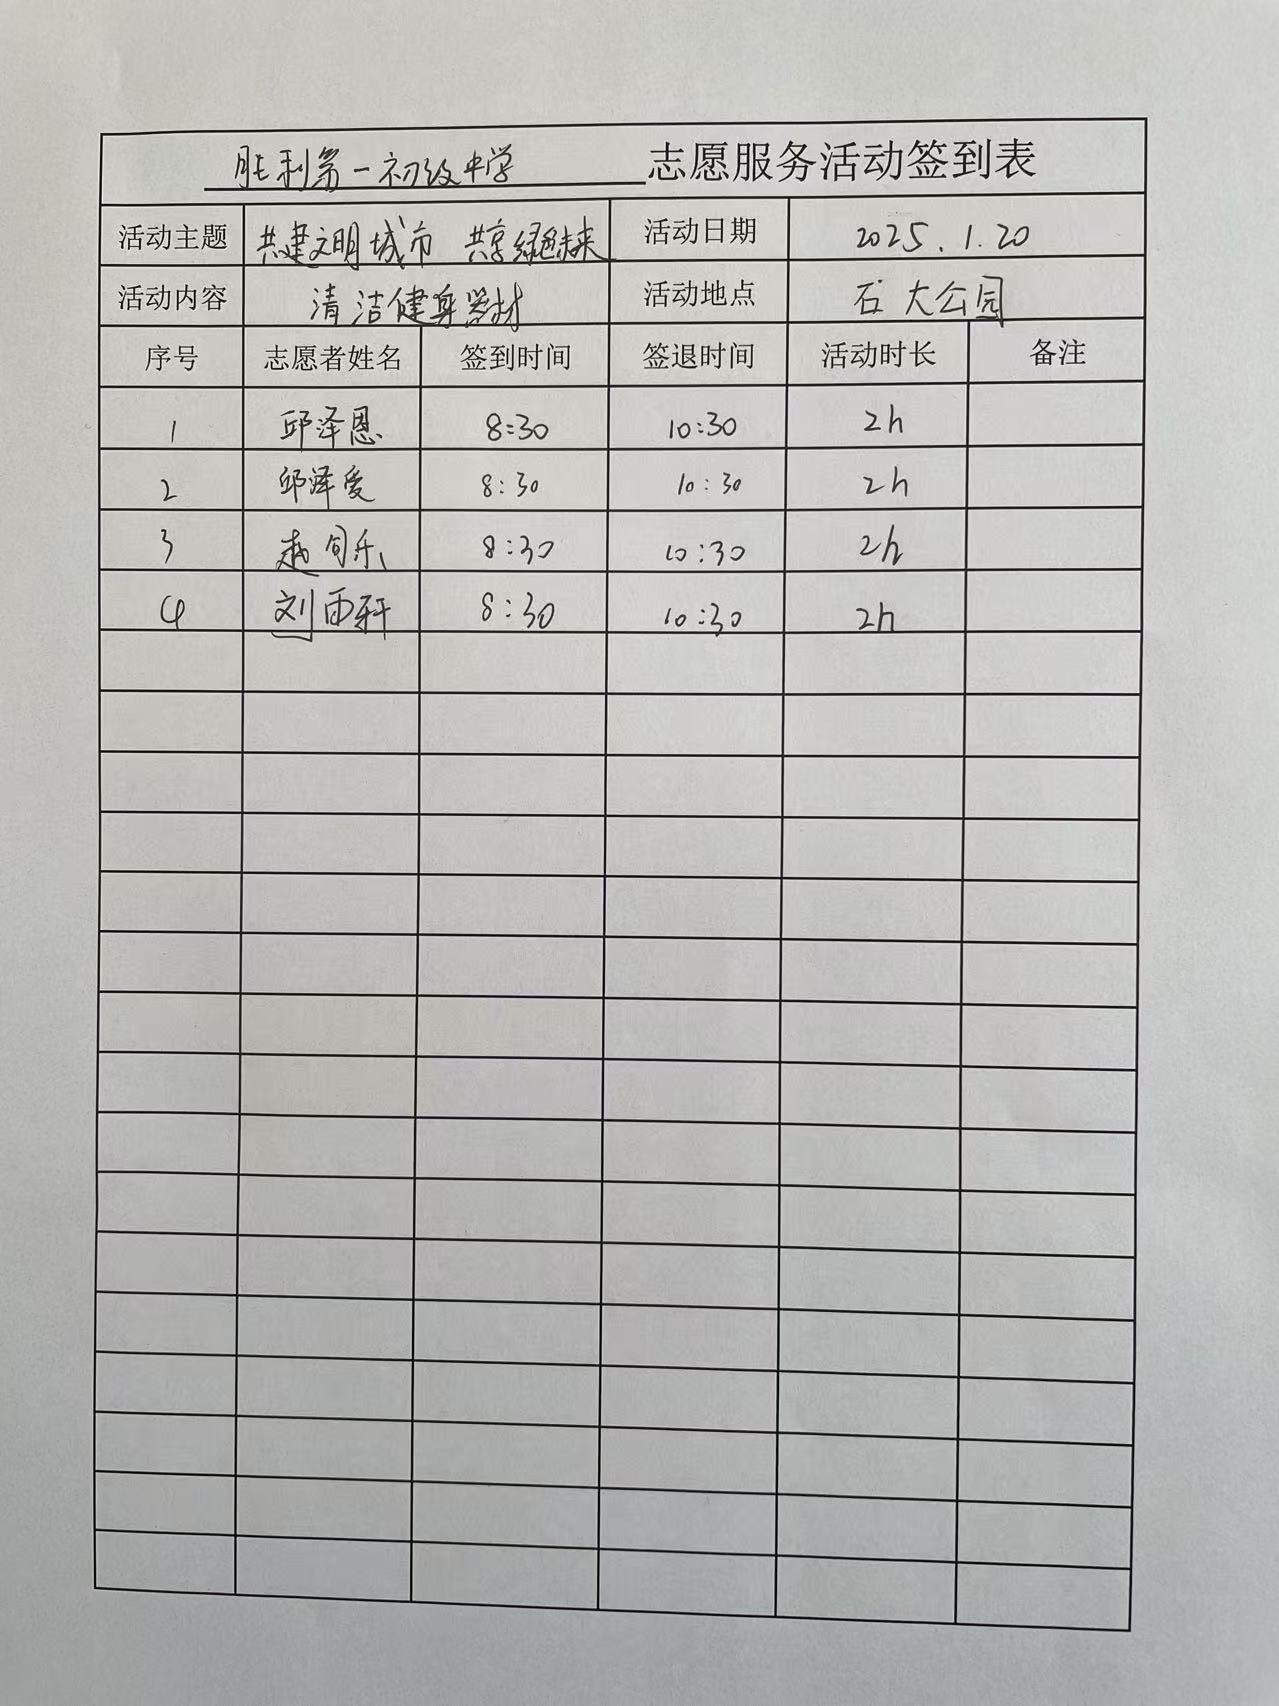 胜利第一初级中学 志愿服务活动签到表
活动主题 共建文明城市 共享绿色未来 活动日期 2025.1.20
活动内容 清洁健身器材 活动地点 石大公园
序号 志愿者姓名 签到时间 签退时间 活动时长 备注
1 邱泽恩 8:30 10:30 2h
2 邱泽爱 8:30 10:30 2h
3 赵旬乐 8:30 10:30 2h
4 刘雨轩 8:30 10:30 2h